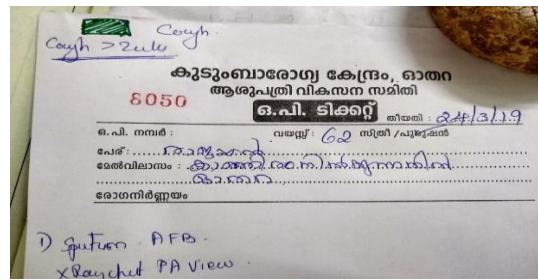 Cough
Cough > 2wks
കുടുംബാരോഗ്യ കേന്ദ്രം, ഓതറ
ആശുപത്രി വികസന സമിതി
8050
ഒ.പി. ടിക്കറ്റ് തീയതി : 24/3/19
ഒ.പി. നമ്പർ : വയസ്സ് : 62 സ്ത്രീ /പുരുഷൻ
പേര് :
മേൽവിലാസം :
രോഗനിർണ്ണയം
1) Sputum AFB.
X Ray chest PA View